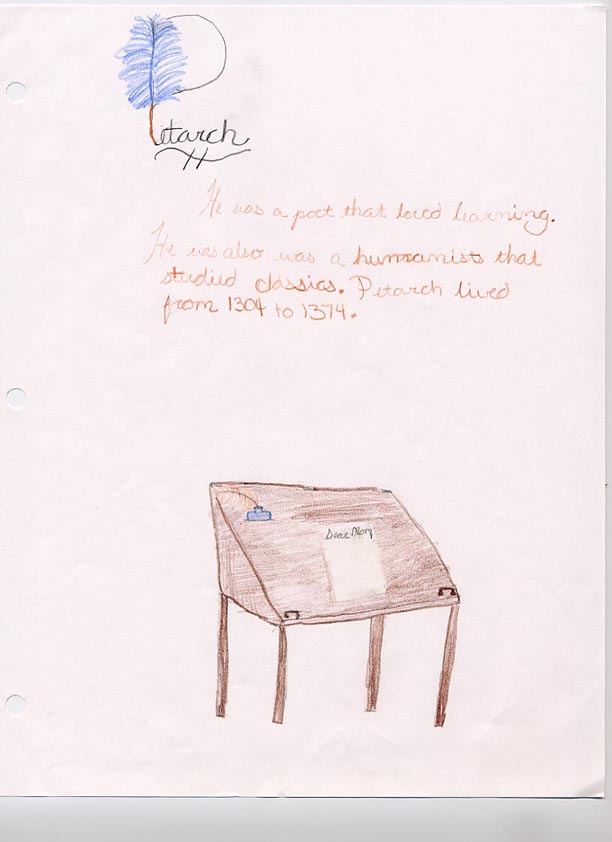 Petarch
He was a poet that loved learning.
He was also was a humanists that
studied classics. Petarch lived
from 1304 to 1374.
Dear Mom,